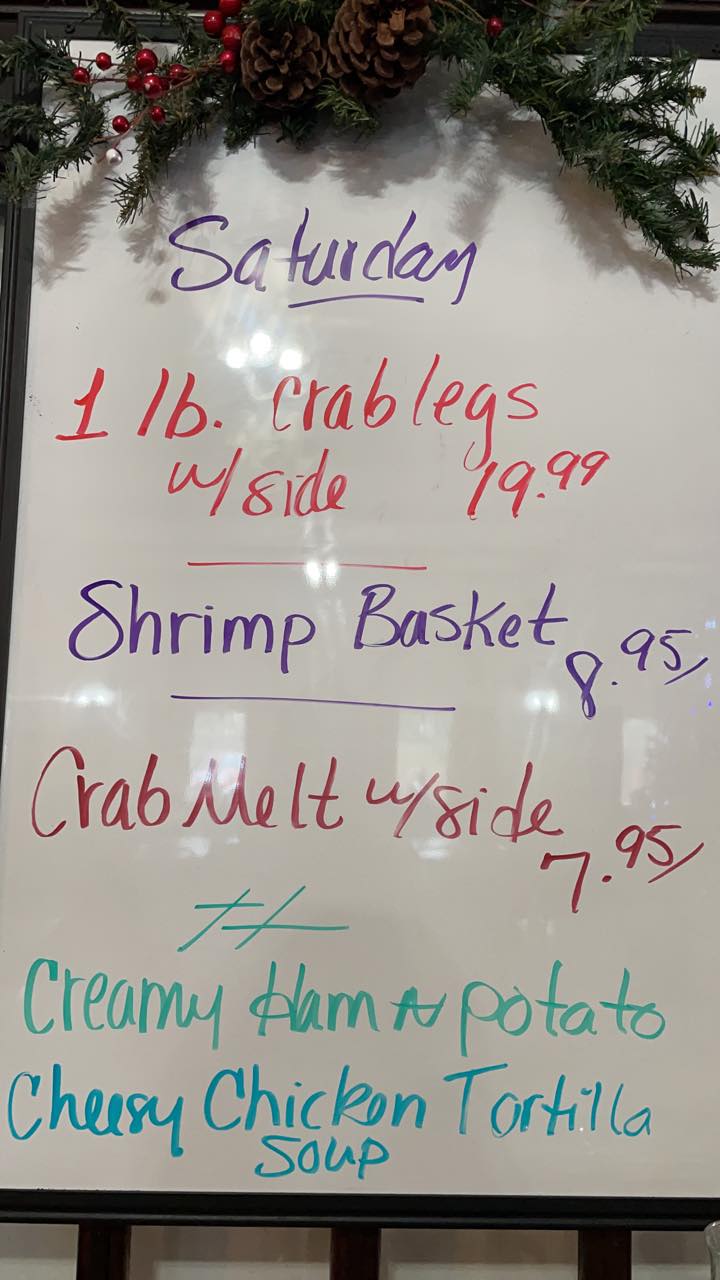 Saturday
1 lb. crab legs
w/side 19.99
Shrimp Basket 8.95
Crab Melt w/side
7.95
Creamy Ham N potato
Cheesy Chicken Tortilla
Soup